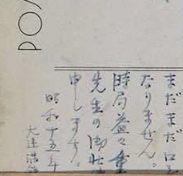 POS
まだまだ
なりません。
時局益々重
先生の御
申します。
昭和十五年
大連